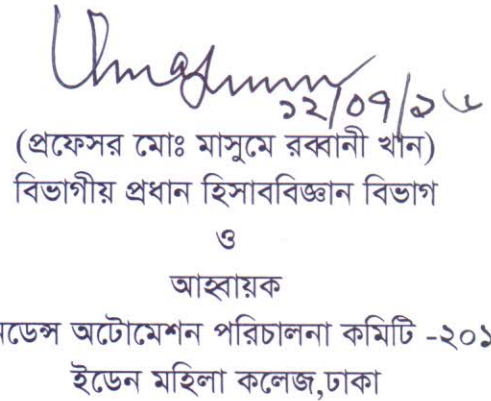 ১২/০৭/১৬
(প্রফেসর মোঃ মাসুমে রব্বানী খান)
বিভাগীয় প্রধান হিসাববিজ্ঞান বিভাগ
ও
আহবায়ক
অটোমেশন পরিচালনা কমিটি -২০১
ইডেন মহিলা কলেজ,ঢাকা